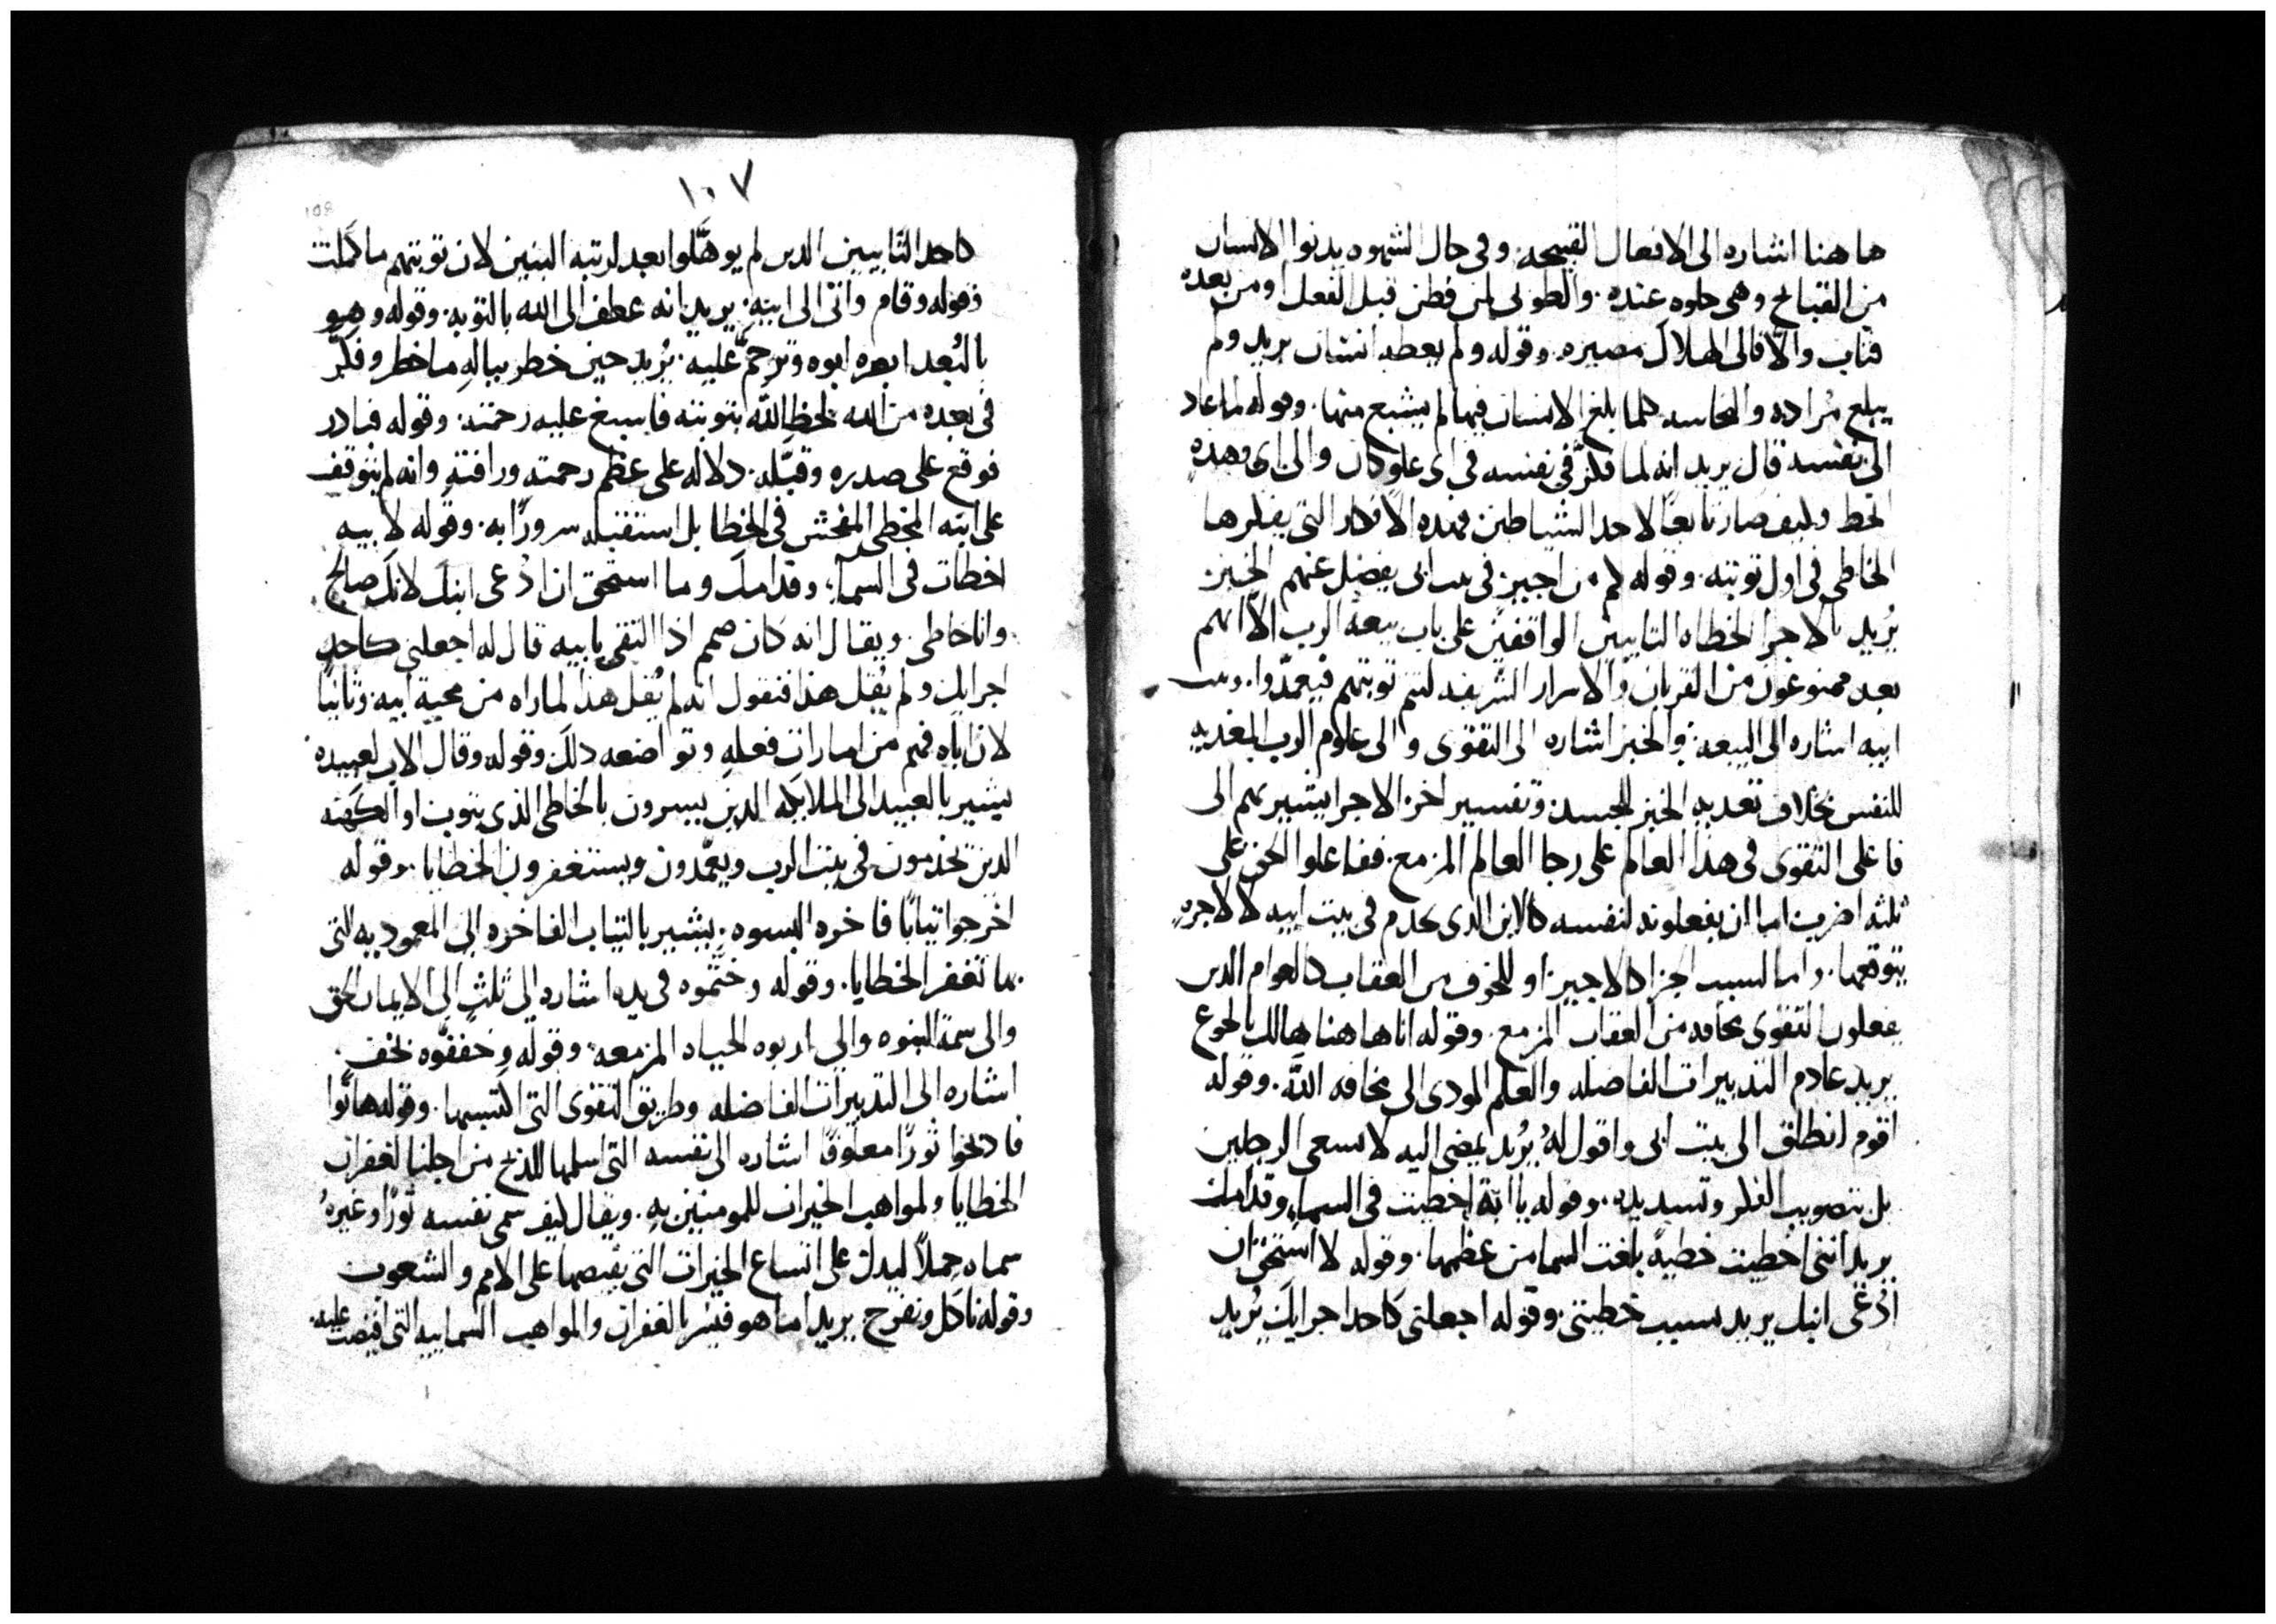 ها هنا اشاره الى الافعال القبيحه. وفي حال الشهوه يدنوا الانسان
من القبايح وهي حلوه عنده. والطوبى لمن فطن قبل الفعل او من بعده
فتاب والّا فالى الهلاك مصيره. وقوله ولم يعطه انسان يريد ولم
يبلغ مُراده والنجاسه كلما بلغ الانسان فيها لم يشبع منها. وقوله لما عاد
الى نفسه قال يريد انه لما فكرّ في نفسه في اي علو كان والى اي وهده
انحط وكيف صار تابعًا لاحد الشياطين فهذه الافكار التي يفكرها
الخاطي في اول توبته. وقوله كم من اجيرٍ في بيت ابي يفضل عنهم الخبز
يُريد بالاجرا الخطاه التايبين الواقفين على باب بيعة الرب الّا انهم
بعد ممنوعون من القربان والاسرار الشريفه لتتم توبتهم فيعمّدوا. وبيت
ابيه اشاره الى البيعه. والخبز اشاره الى التقوى والى علوم الرب المغذيه
للنفس بخلاف تغديه الخبز للجسد وتفسير اخر الاجرا يشير بهم الى
فاعلي التقوى في هذا العالم على رجا العالم المزمع. ففاعلوا الحق على
ثلثه اضرب اما ان يفعلونه لنفسه كالابن الذي يخدم في بيت ابيه لا لاجرهٍ
يتوقعها. واما لسبب الجزا كالاجير او للخوف من العقاب كالعوام الدين
يفعلون التقوى مخافه من العقاب المزمع. وقوله انا هاهنا هالك بالجوع
يريد عادم التدبيرات الفاضله والعلم المودي الى مخافه اللَّه. وقوله
اقوم انطلق الى بيت ابي واقول لهُ يُريد يمضي اليه لا بسعي الرجلين
بل بتصويب الفكر وتسديده. وقوله يا ابة اخطيت في السماءِ وقدامك
يريد انني اخطيت خطيةً بلغت السما من عظمها. وقوله لا استحق ان
اُدْعَى ابنك يريد بسبب خطيتي. وقوله اجعلني كاحد اجرايك يُريد
١٠٧
108
كاحد التّايبين الدين لم يوهَّلوا بعد لرتبه البنين لان توبتهم ما كملت
وقوله وقام واتى الى ابيهِ. يريد انه عطف الى الله بالتوبه. وقوله وهو
بالبُعد ابصره ابوه وترحّم عليه. يُريد حين خطر ببالهِ ما خطر وفكرّ
في بعده من الله لحظ اللَّه بتوبته فاسبغ عليه رحمته. وقوله فبادر
فوقع على صدره وقبّله. دلاله على عظم رحمته ورافته وانه لم يتوقف
على ابنه المخطي المفحش في الخطا بل استقبله سرورًا به. وقوله لابيه
اخطات في السماء وقدامك وما استحق ان اُدعى ابنك لانك صالح
وانا خاطي. ويقال انه كان صمم اذا التقى بابيه قال له اجعلني كاحد
اجرايك ولم يقل هذا فنقول انه لم يقل هذا لما راه من محبة ابيه. وثانيًا
لان اباه فهم من امارات فعلهِ وتواضعه ذلك. وقوله وقال الاب لعبيده
يشير بالعبيد الى الملايكه الدين يسرون بالخاطي الذي يتوب او الكهنه
الدين يخدمون في بيت الرب ويعمّدون ويستغفرون الخطايا. وقوله
اخرجوا ثيابًا فاخره البسوه. يشير بالثياب الفاخره الى المعموديه التي
بها تغفر الخطايا. وقوله وختّموه في يده اشاره الى ثلث الى الايمان الحق
والى سمة البنوه والى اربوه الحياه المزمعه. وقوله وخففّوه بخف
اشاره الى التدبيرات الفاضله وطريق التقوى التي اكتسبها. وقوله هاتُوا
فاذبحوا ثورًا معلوفًا اشاره الى نفسه التي اسلمها للذبح من اجلنا لغفران
الخطايا ولمواهب الخيرات للمومنين بهِ. ويقال كيف سمى نفسه ثورًا وغيرهُ
سماه حملاً ليدل على اتساع الخيرات التي يفيضها على الامم والشعوب
وقوله ناكل ونفرح يريد اما هو فيسر بالغفران والمواهب السماييه التي افيضت عليه.